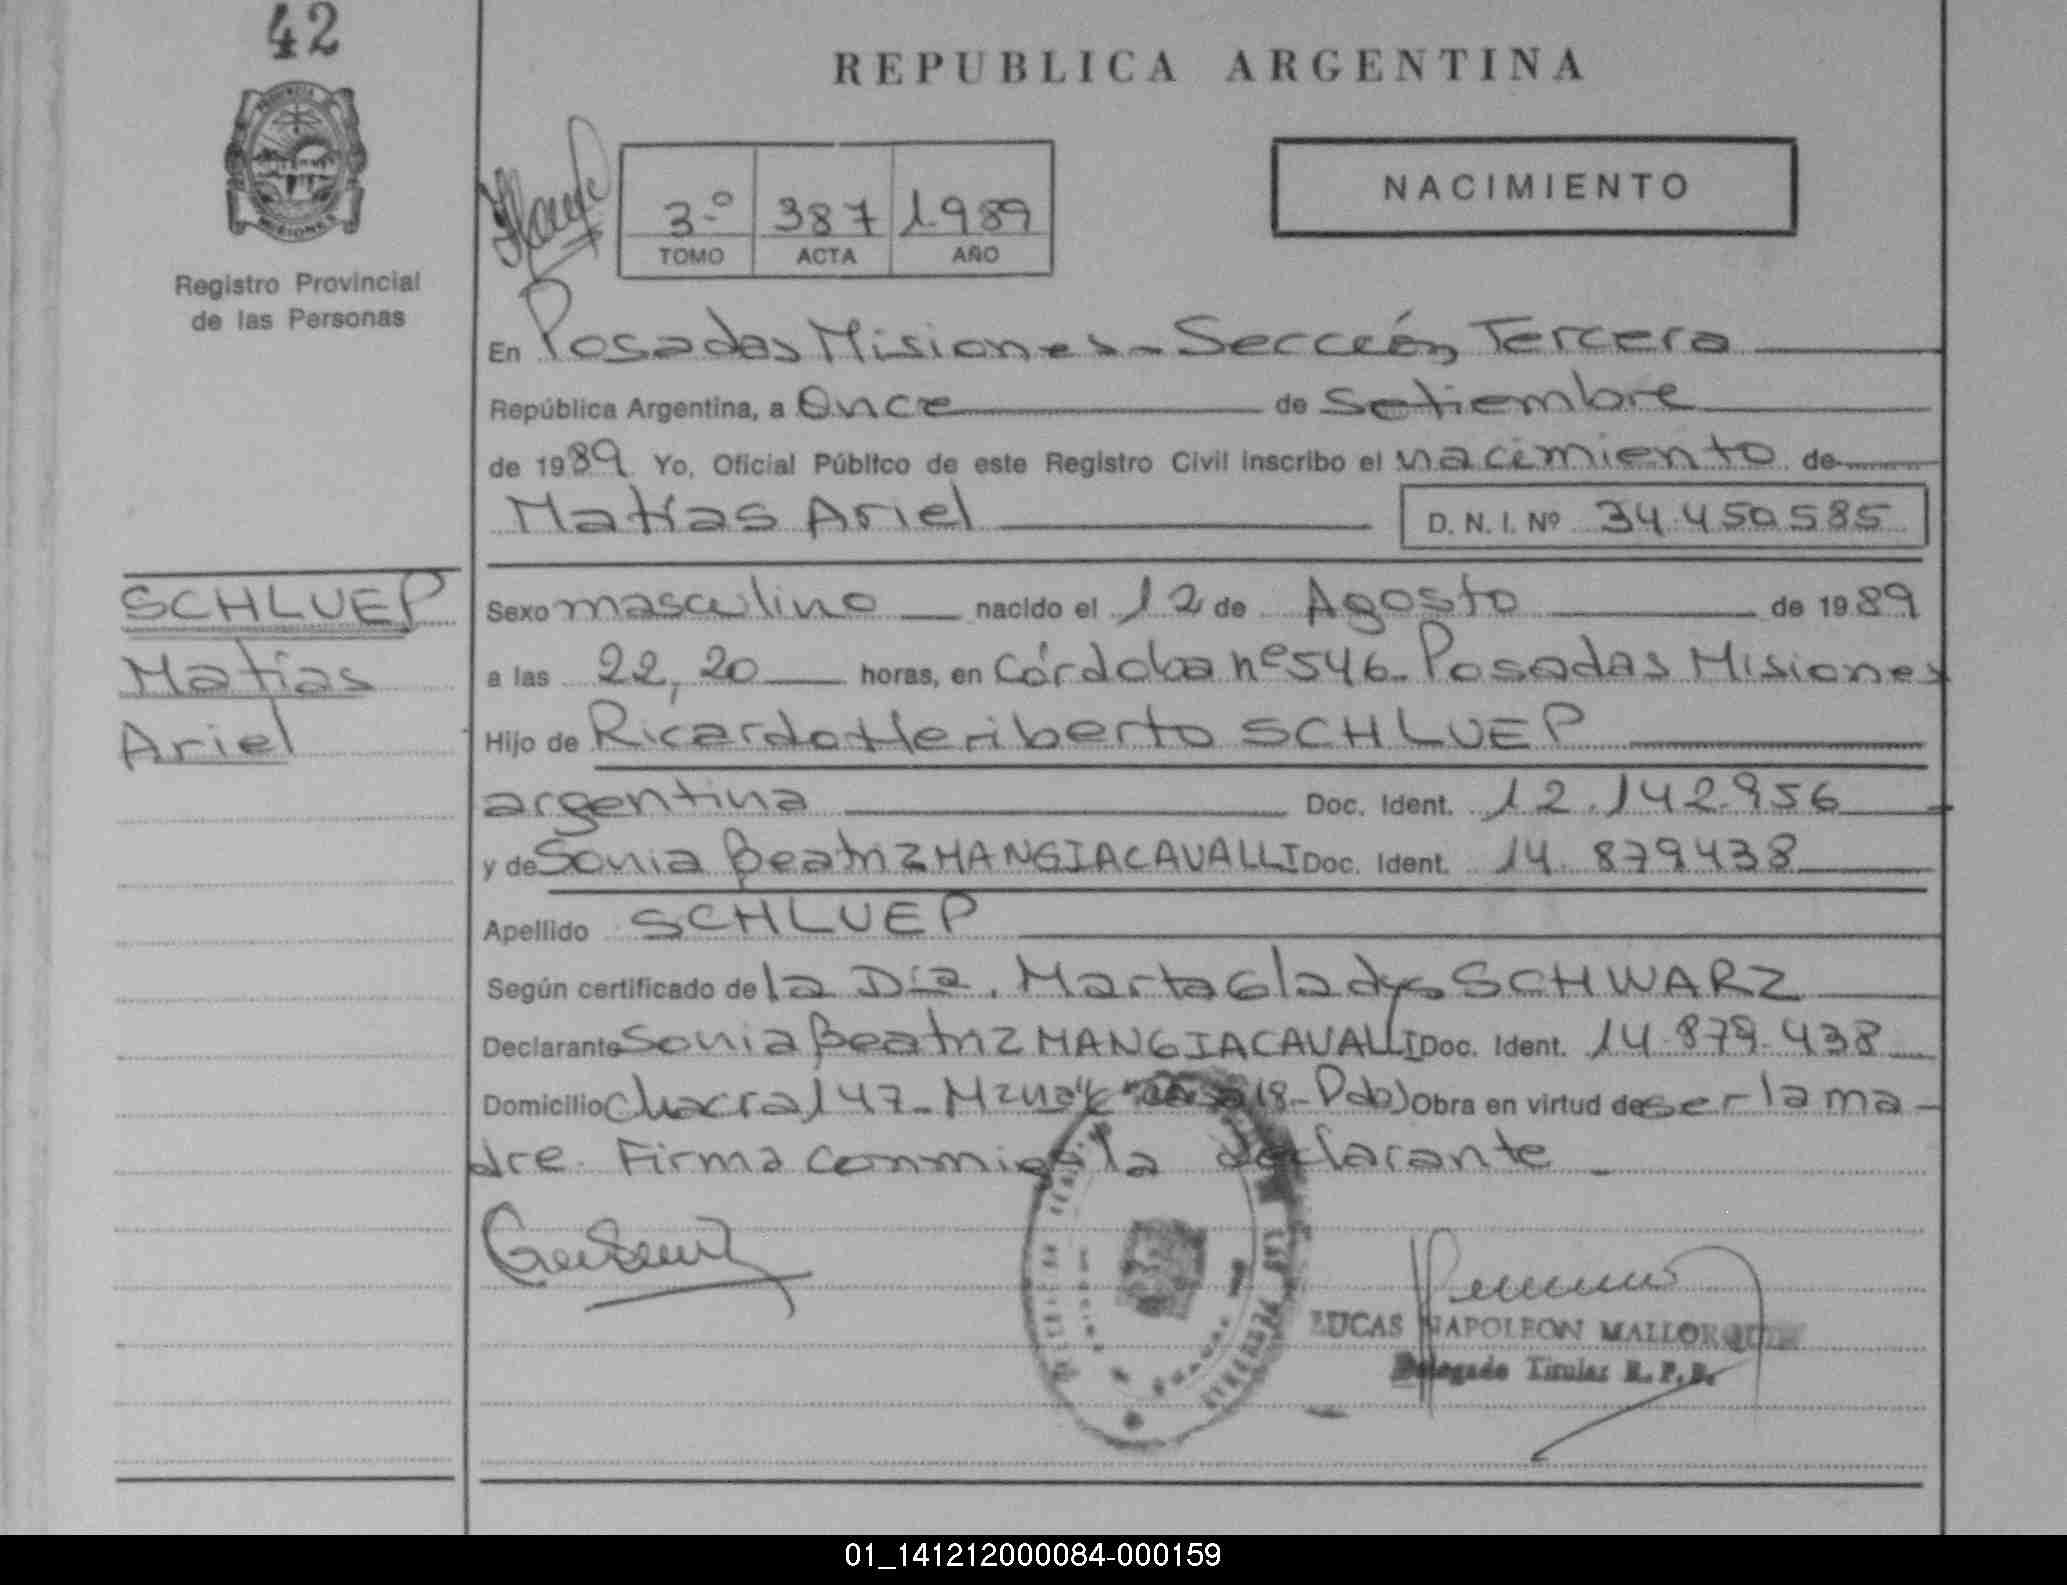 42
REPUBLICA ARGENTINA
NACIMIENTO
3º 387 1989
TOMO ACTA AÑO
Registro Provincial
de las Personas
En Posadas Misiones - Sección Tercera
República Argentina, a Once de Setiembre
de 1989 Yo, Oficial Público de este Registro Civil inscribo el nacimiento de
Matías Ariel D. N. I. Nº 34.450.585
SCHLUEP
Matías
Ariel
Sexo masculino nacido el 12 de Agosto de 1989
a las 22,20 horas, en Córdoba nº 546 - Posadas Misiones
Hijo de Ricardo Heriberto SCHLUEP
argentina Doc. Ident. 12.142.956
y de Sonia Beatriz MANGIACAVALLI Doc. Ident. 14.879438
Apellido SCHLUEP
Según certificado de la Dra. Marta Gladys SCHWARZ
Declarante Sonia Beatriz MANGIACAVALLI Doc. Ident. 14.879.438
Domicilio Chacra 147 - Mzna 18 - Pdas) Obra en virtud de ser la ma-
dre. Firma conmigo la declarante -
LUCAS NAPOLEON MALLORQUIN
Delegado Titular R. P. P.
01_141212000084-000159